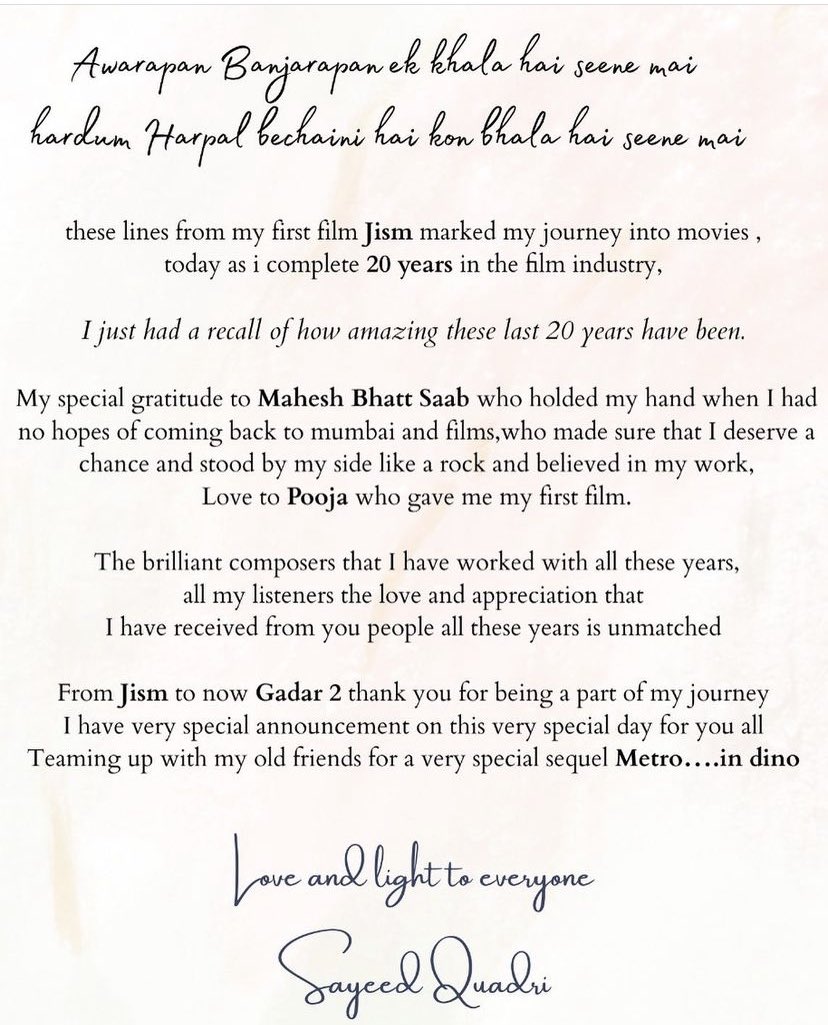 Awarapan Banjarapan ek khala hai seene mai
hardum Harpal bechaini hai kon bhala hai seene mai
these lines from my first film Jism marked my journey into movies ,
today as i complete 20 years in the film industry,
I just had a recall of how amazing these last 20 years have been.
My special gratitude to Mahesh Bhatt Saab who holded my hand when I had
no hopes of coming back to mumbai and films,who made sure that I deserve a
chance and stood by my side like a rock and believed in my work,
Love to Pooja who gave me my first film.
The brilliant composers that I have worked with all these years,
all my listeners the love and appreciation that
I have received from you people all these years is unmatched
From Jism to now Gadar 2 thank you for being a part of my journey
I have very special announcement on this very special day for you all
Teaming up with my old friends for a very special sequel Metro....in dino
Love and light to everyone
Sayeed Quadri